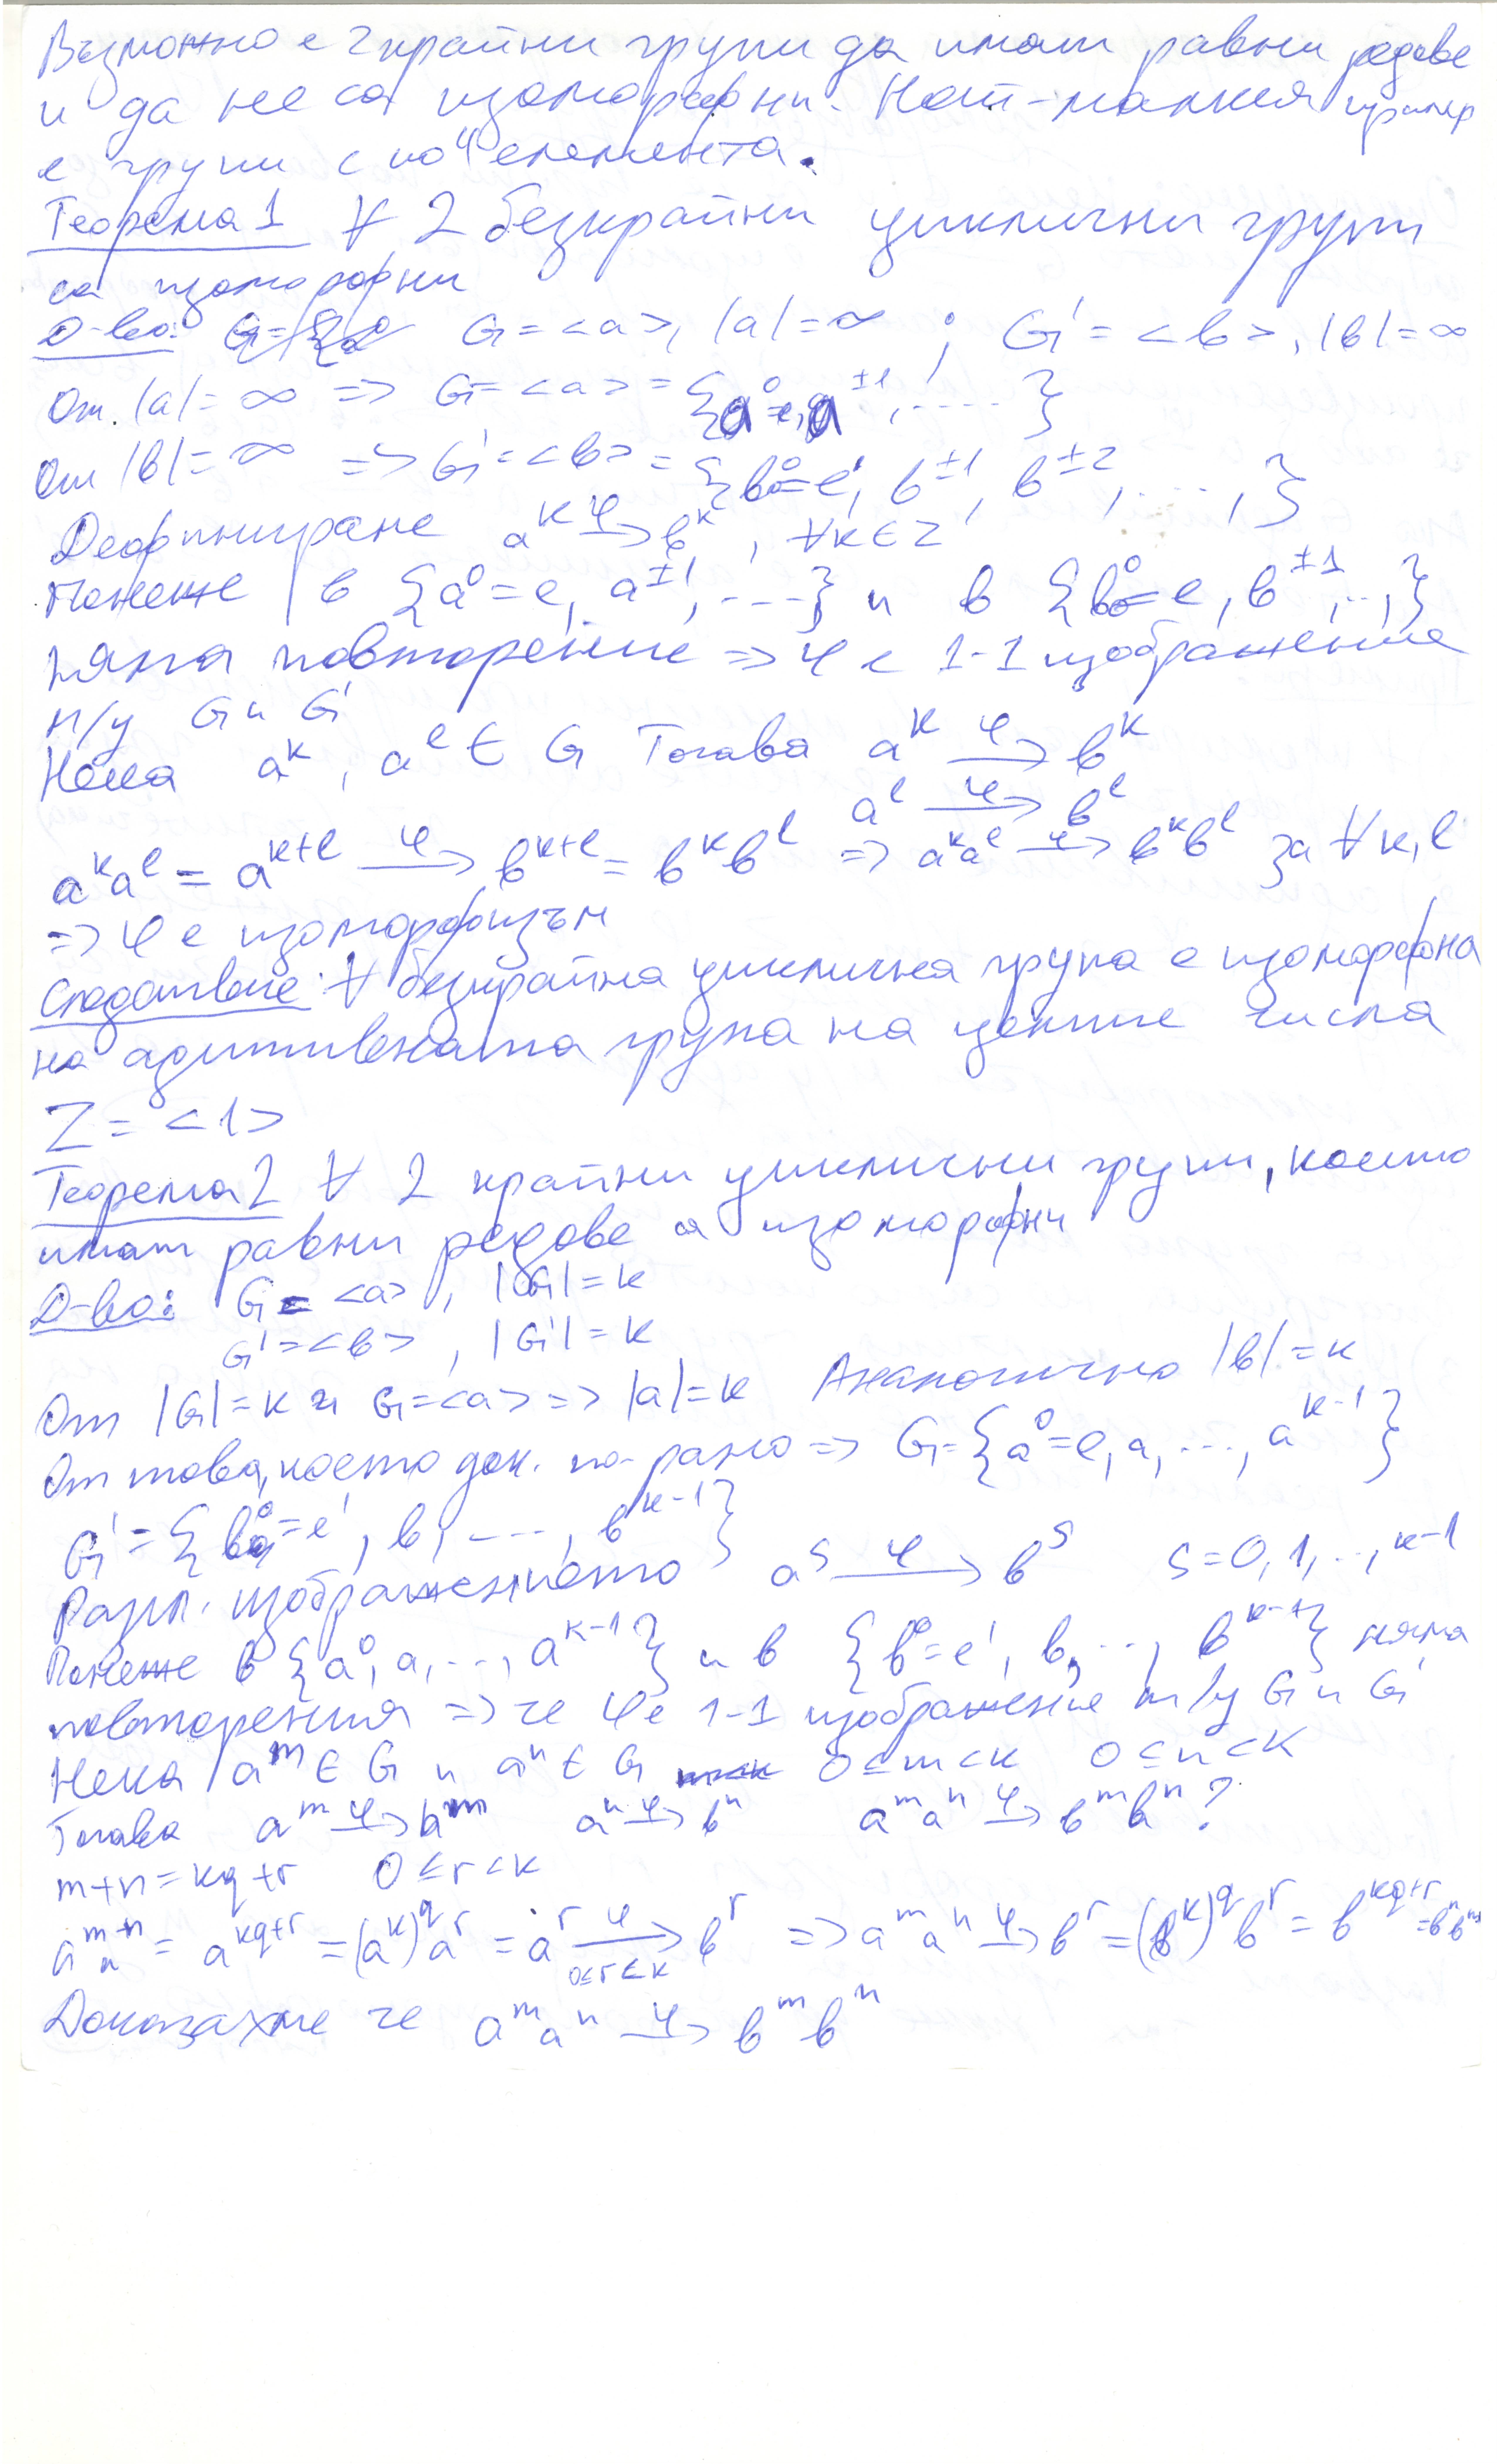 Възможно е 2 крайни групи да имат равни редове
и да не са изоморфни. Най-малкия пример
е групи с по 4 елемента.
Теорема 1 ∀ 2 безкрайни циклични групи
са изоморфни
Д-во: G = <a>, |a| = ∞ ; G' = <b>, |b| = ∞
От |a| = ∞ => G = <a> = {a⁰ = e, a^±1, ....}
От |b| = ∞ => G' = <b> = {b⁰ = e', b^±1, b^±2, ...., }
Дефинираме a^k –φ→ b^k, ∀k ∈ Z
Понеже в {a⁰ = e, a^±1, ---} и в {b⁰ = e, b^±1, .., }
няма повторение => φ е 1-1 изображение
м/у G и G'
Нека a^k, a^l ∈ G Тогава a^k –φ→ b^k
a^l –φ→ b^l
a^k a^l = a^(k+l) –φ→ b^(k+l) = b^k b^l => a^k a^l –φ→ b^k b^l за ∀ k, l
=> φ е изоморфизъм
Следствие: ∀ безкрайна циклична група е изоморфна
на адитивната група на целите числа
Z = <1>
Теорема 2 ∀ 2 крайни циклични групи, които
имат равни редове са изоморфни
Д-во: G = <a>, |G| = k
G' = <b>, |G'| = k
От |G| = k и G = <a> => |a| = k Аналогично |b| = k
От това, което док. по-рано => G = {a⁰ = e, a, ..., a^(k-1)}
G' = {b⁰ = e', b, ---, b^(k-1)}
Разгл. изображението a^s –φ→ b^s s = 0, 1, .., k-1
Понеже в {a⁰, a, .., a^(k-1)} и в {b⁰ = e', b, .., b^(k-1)} няма
повторения => че φ е 1-1 изображение м/у G и G'
Нека a^m ∈ G и a^n ∈ G 0 ≤ m < k 0 ≤ n < k
Тогава a^m –φ→ b^m a^n –φ→ b^n a^m a^n –φ→ b^m b^n ?
m+n = kq+r 0 ≤ r < k
a^m a^n = a^(kq+r) = (a^k)^q a^r = a^r –φ→ b^r (0≤r<k) => a^m a^n –φ→ b^r = (b^k)^q b^r = b^(kq+r) = b^n b^m
Доказахме че a^m a^n –φ→ b^m b^n